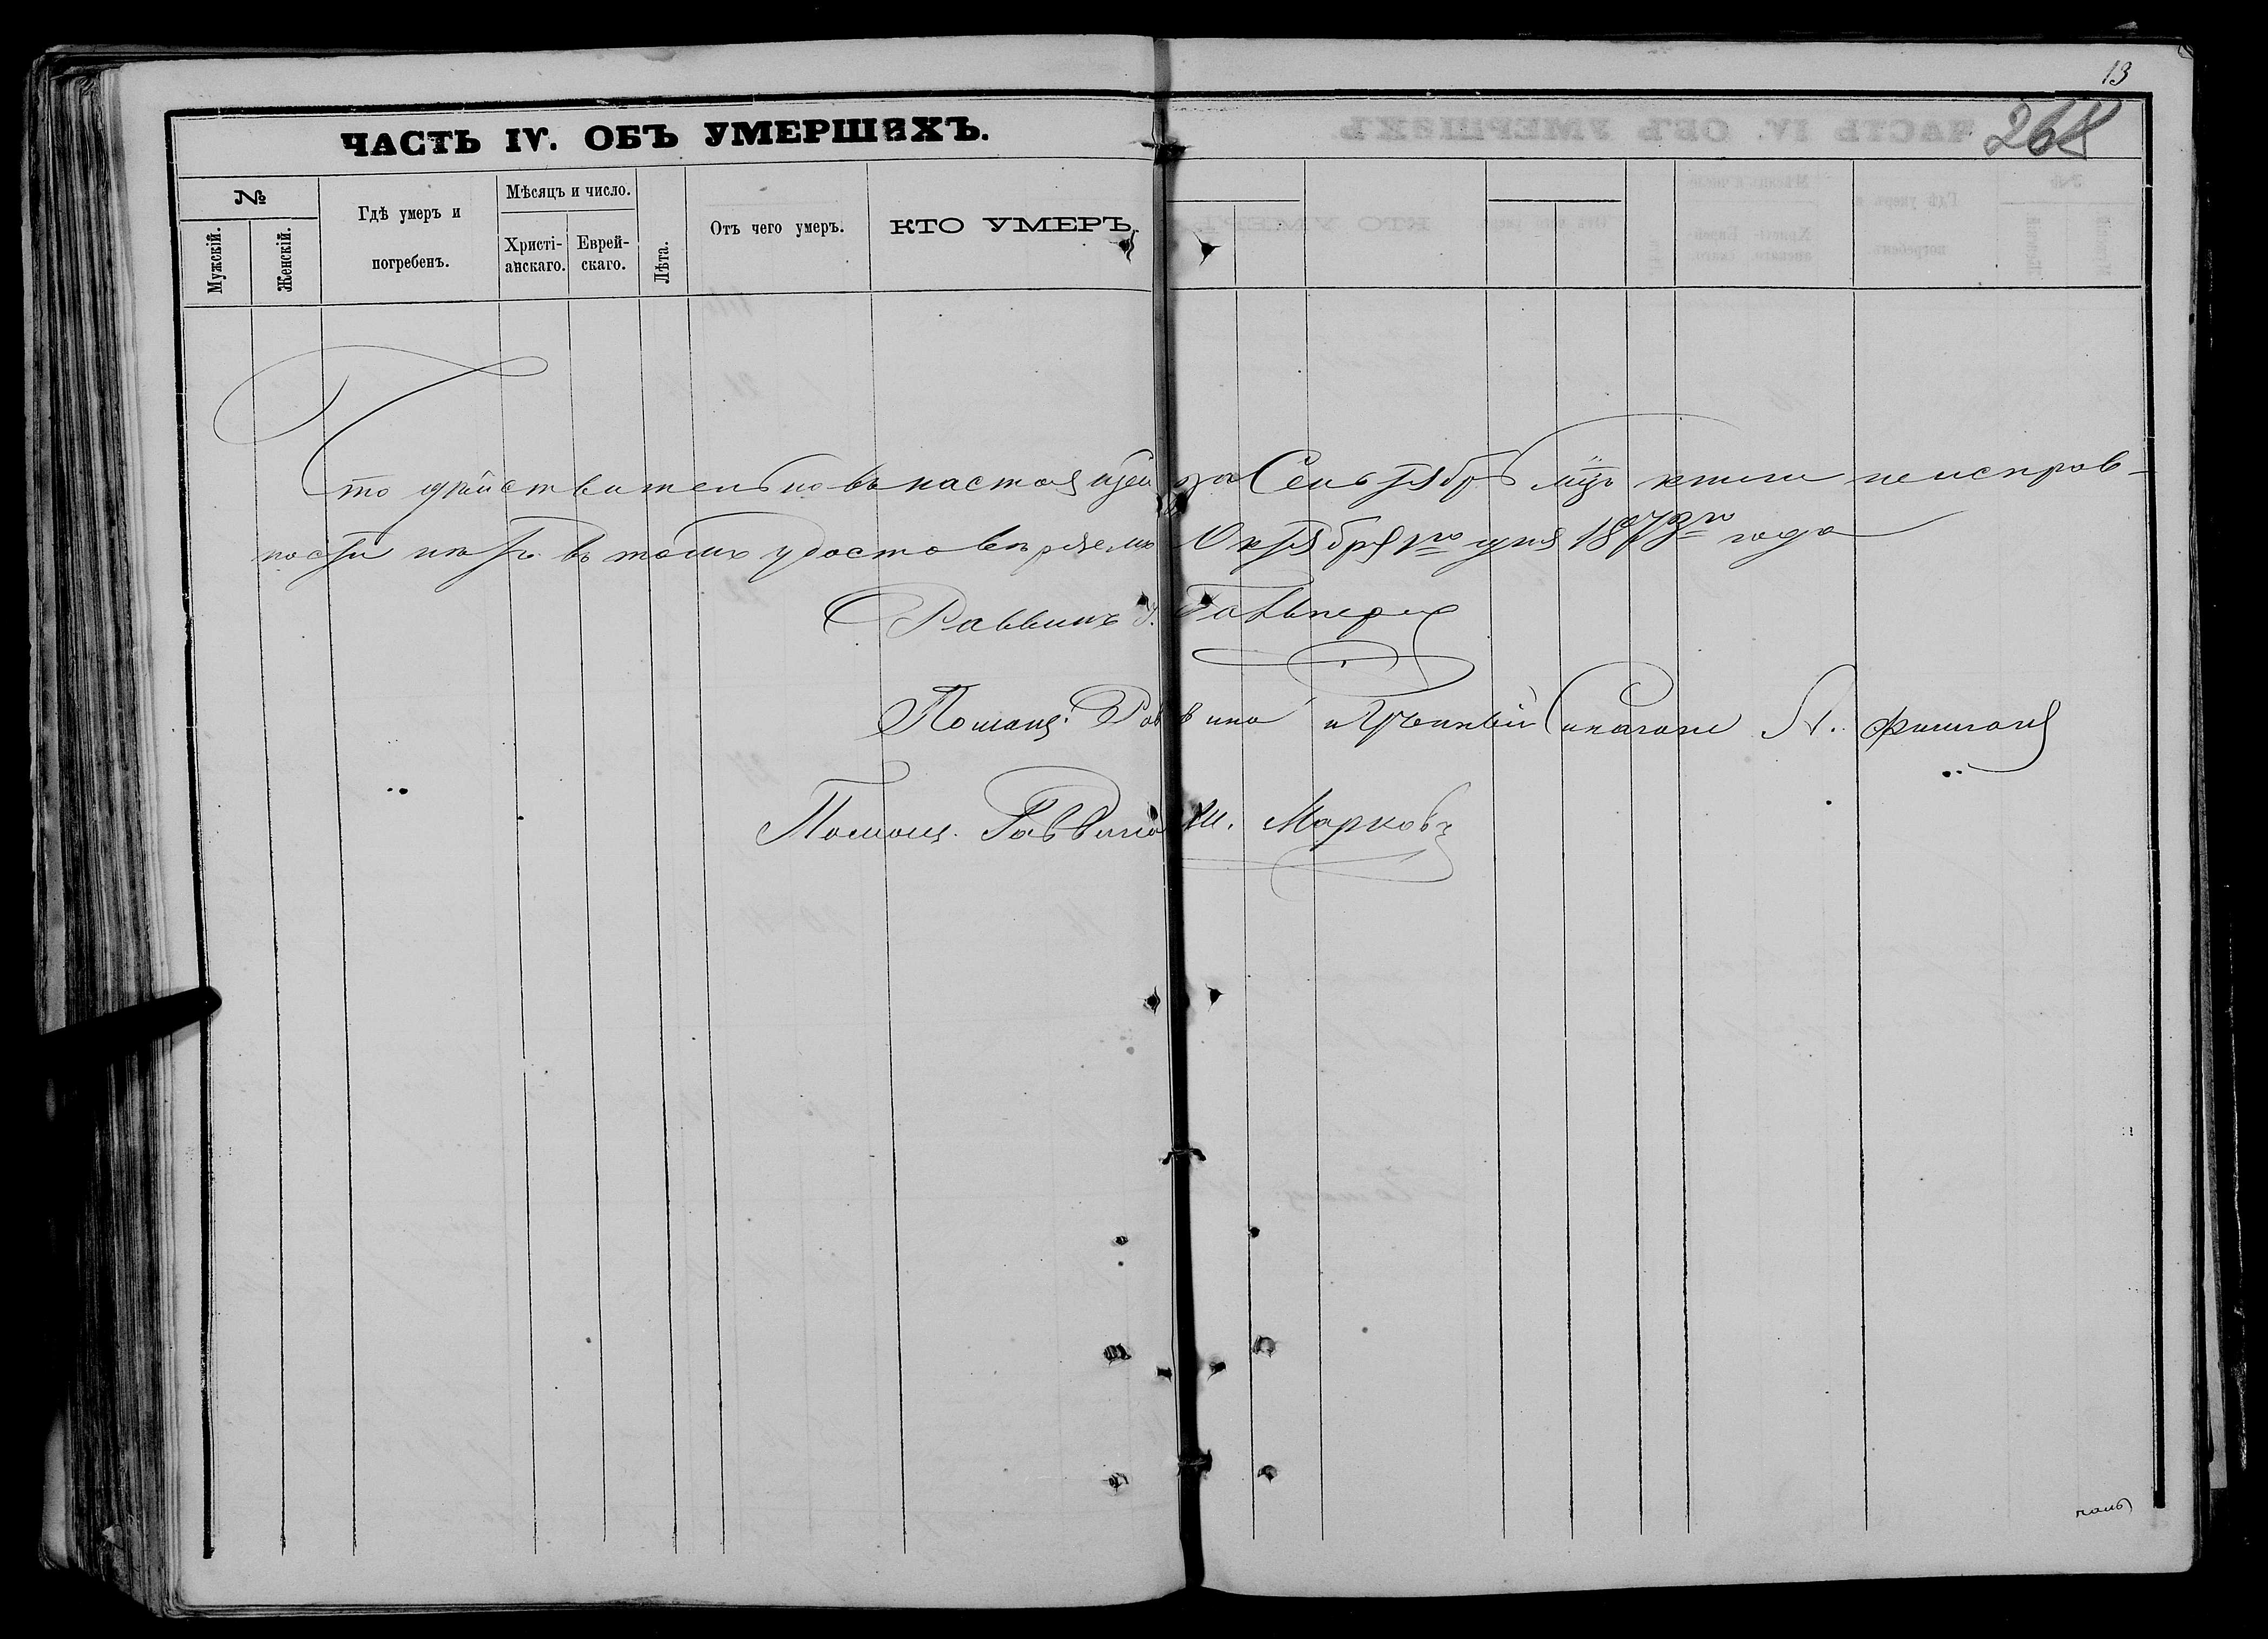 13
268
ЧАСТЬ IV. ОБЪ УМЕРШИХЪ.
№
Мужскій.
Женскій.
Гдѣ умеръ и погребенъ.
Мѣсяцъ и число.
Христіанскаго.
Еврейскаго.
Лѣта.
Отъ чего умеръ.
КТО УМЕРЪ.
Что дѣйствительно въ настоящей за Сентябрь мцъ книги неисправ-
ности нѣтъ въ томъ удостовѣряемъ Октября 1го дня 1873го года
Раввинъ
Помощ: Раввина и Ученный
Помощ. Раввина Ш. Марковъ